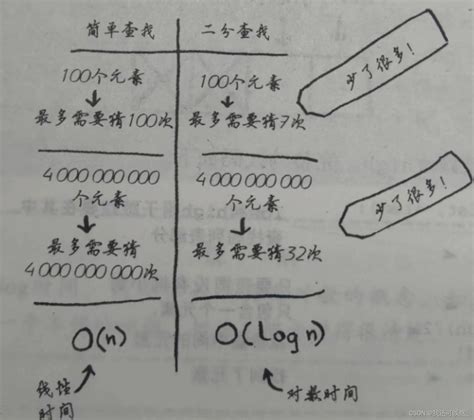 简单查找
二分查找
100个元素
100个元素
最多需要猜100次
最多需要猜7次
少了很多!
4 000 000 000
个元素
4 000 000 000
个元素
最多需要猜
4 000 000 000次
最多需要猜32次
少了很多!
O(n)
O(log n)
线性
时间
对数时间